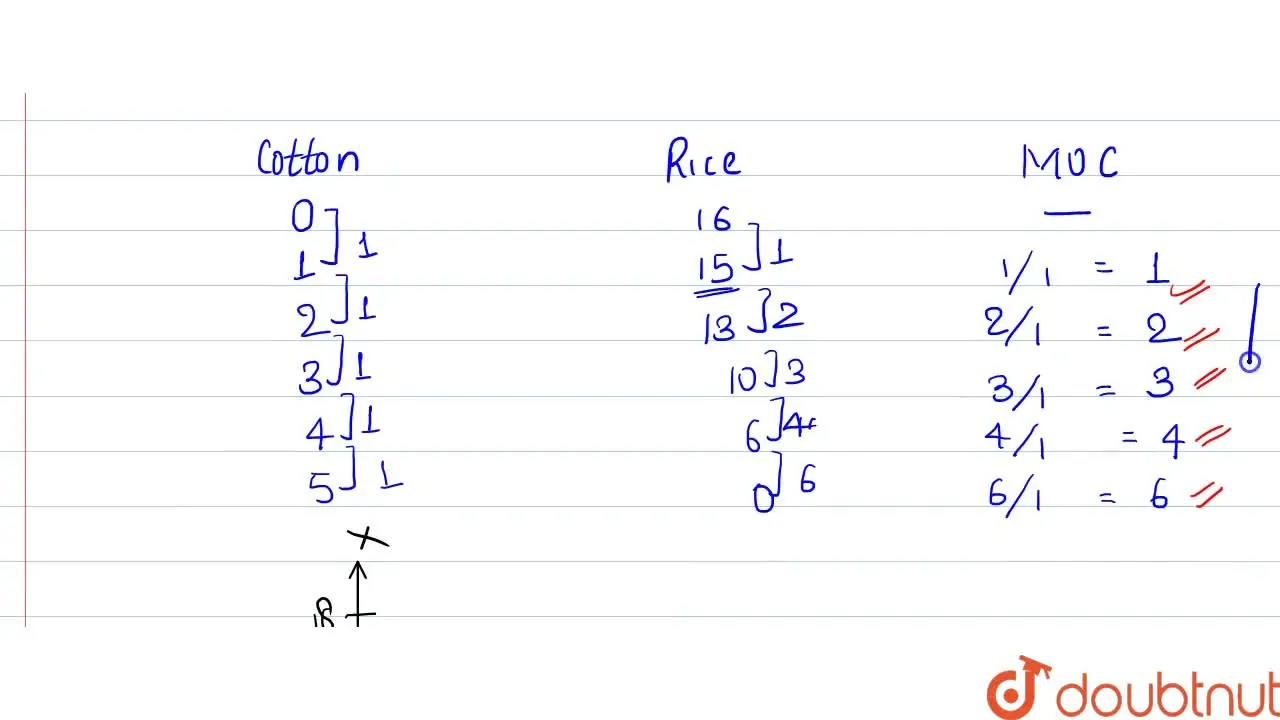 Cotton Rice MOC
0 16
1 1 15 1 1/1 = 1
2 1 13 2 2/1 = 2
3 1 10 3 3/1 = 3
4 1 6 4 4/1 = 4
5 1 0 6 6/1 = 6
x
18
doubtnut